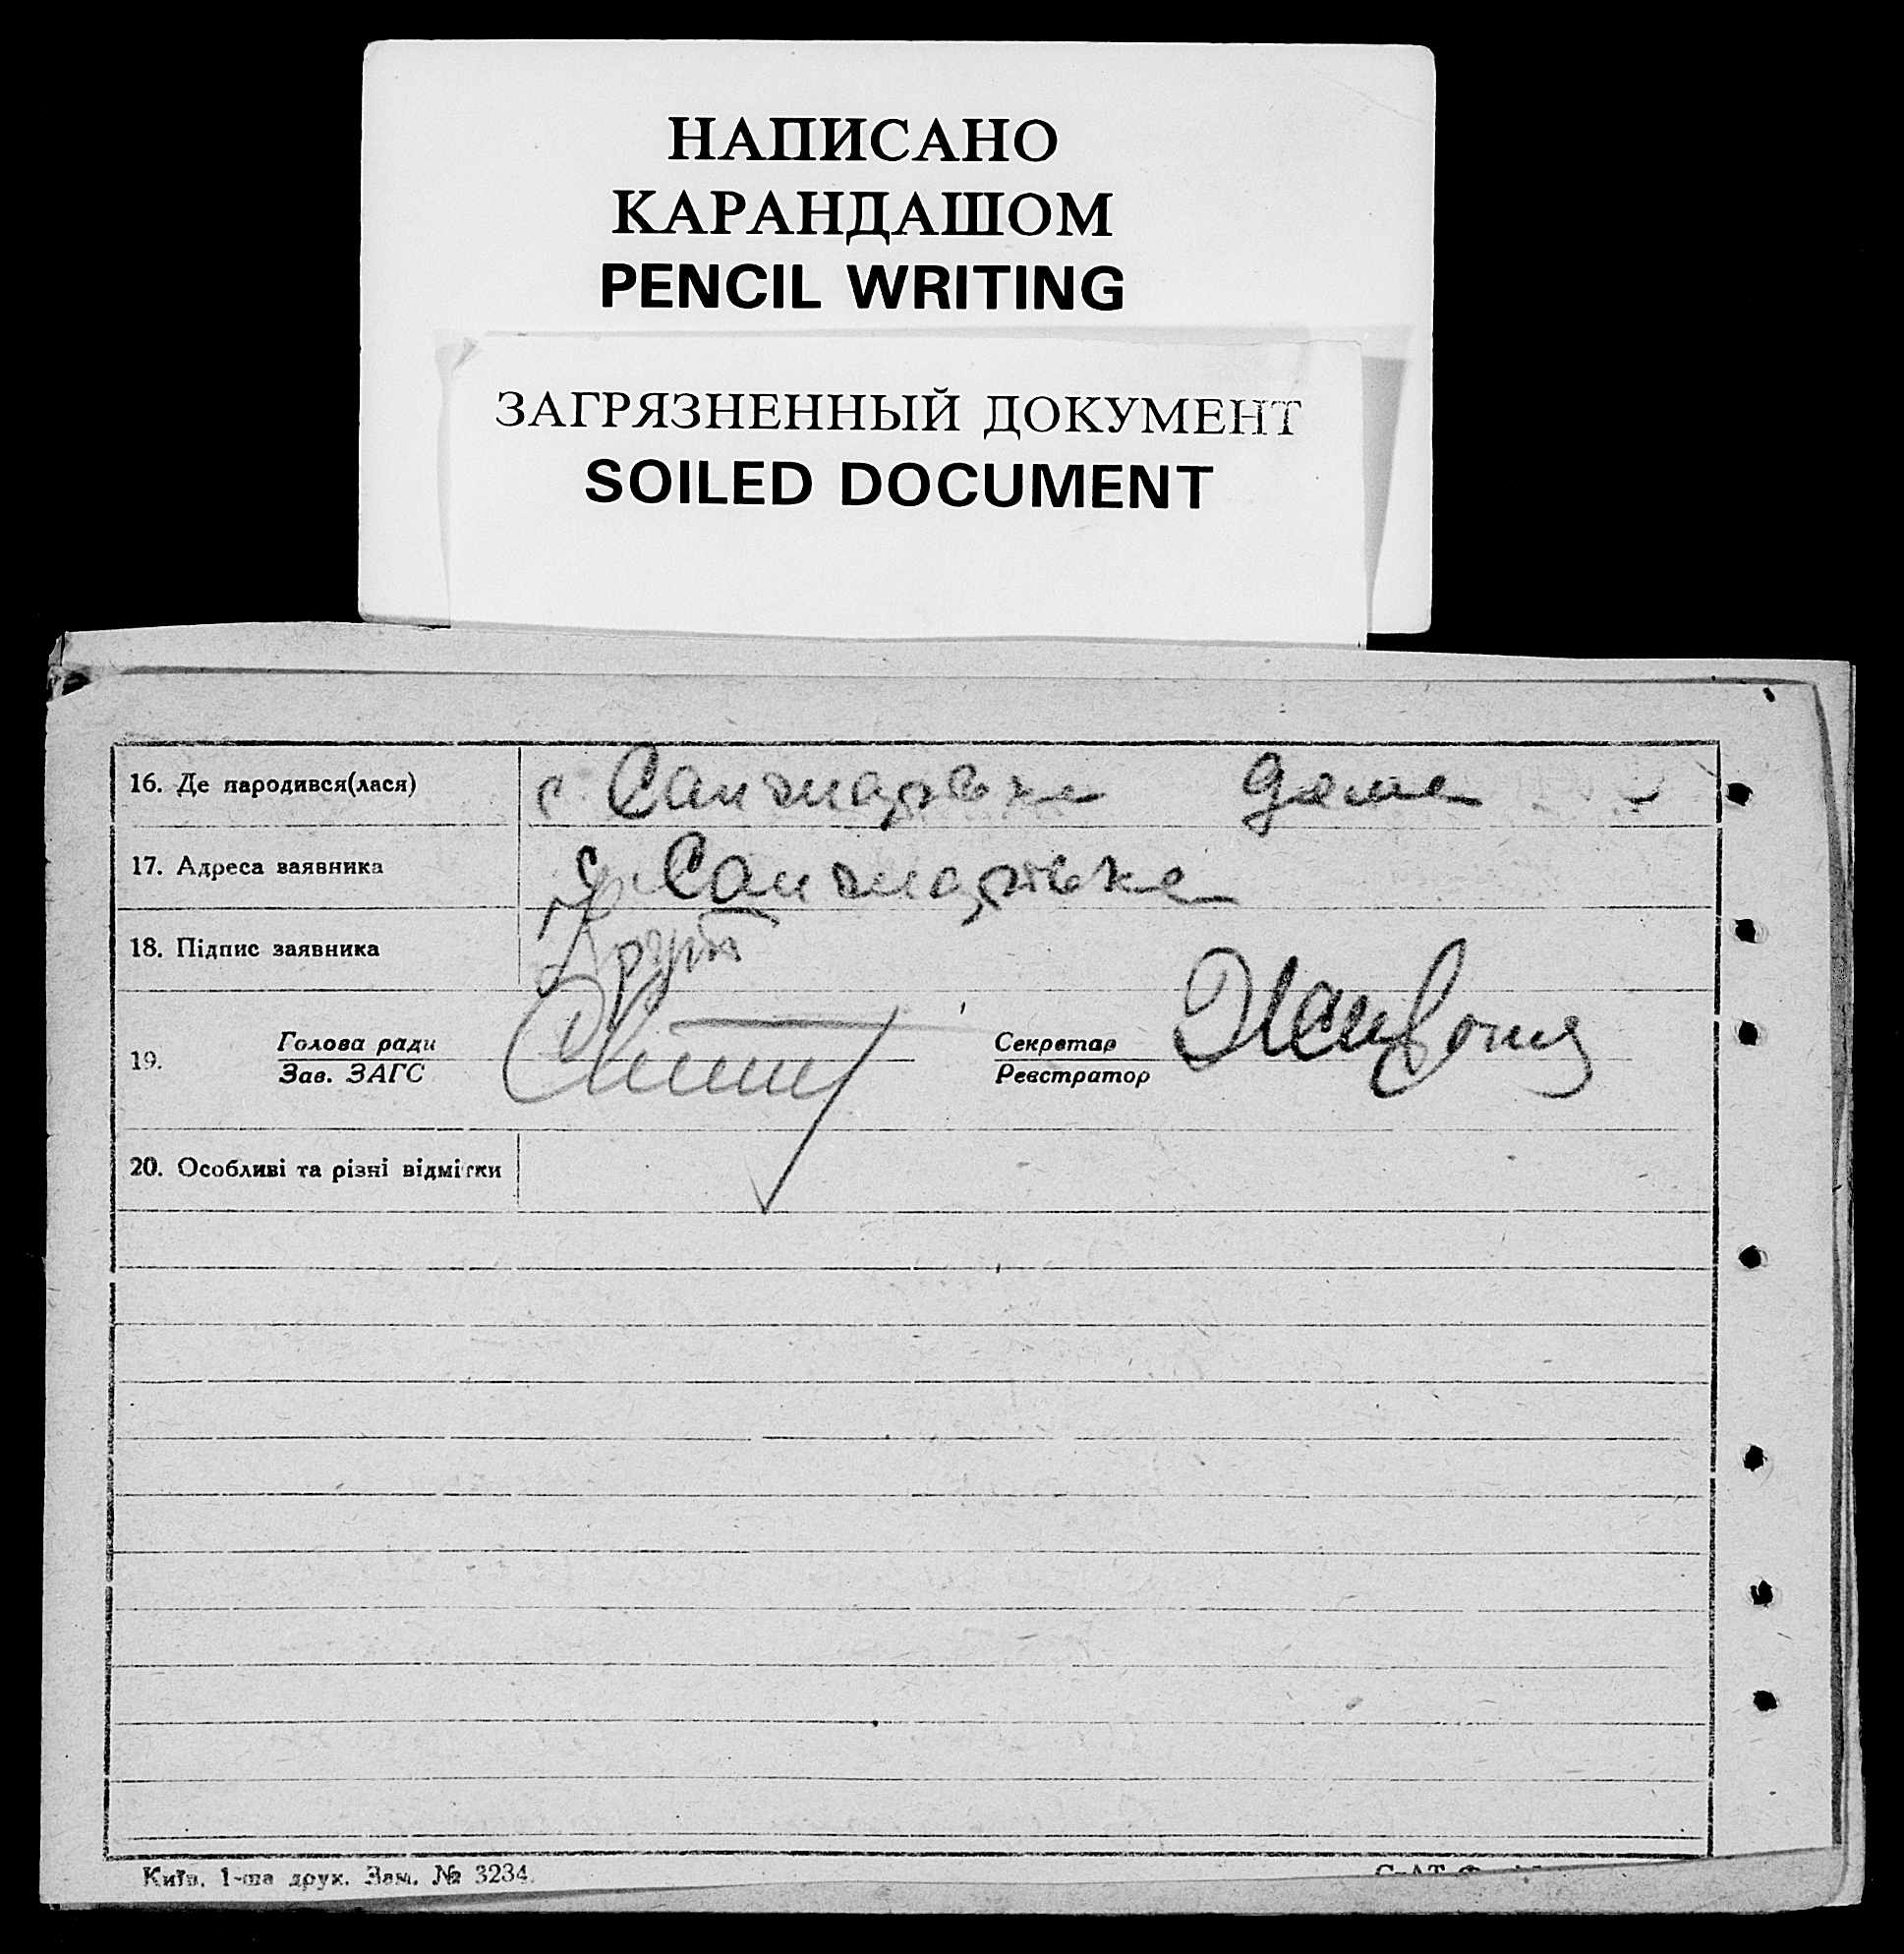 НАПИСАНО
КАРАНДАШОМ
PENCIL WRITING
ЗАГРЯЗНЕННЫЙ ДОКУМЕНТ
SOILED DOCUMENT
16. Де народився(лася) с. дома
17. Адреса заявника с.
18. Підпис заявника
Голова ради Секретар
19.
Зав. ЗАГС Реєстратор
20. Особливі та різні відмітки
Київ. 1-ша друк. Зам. № 3234.